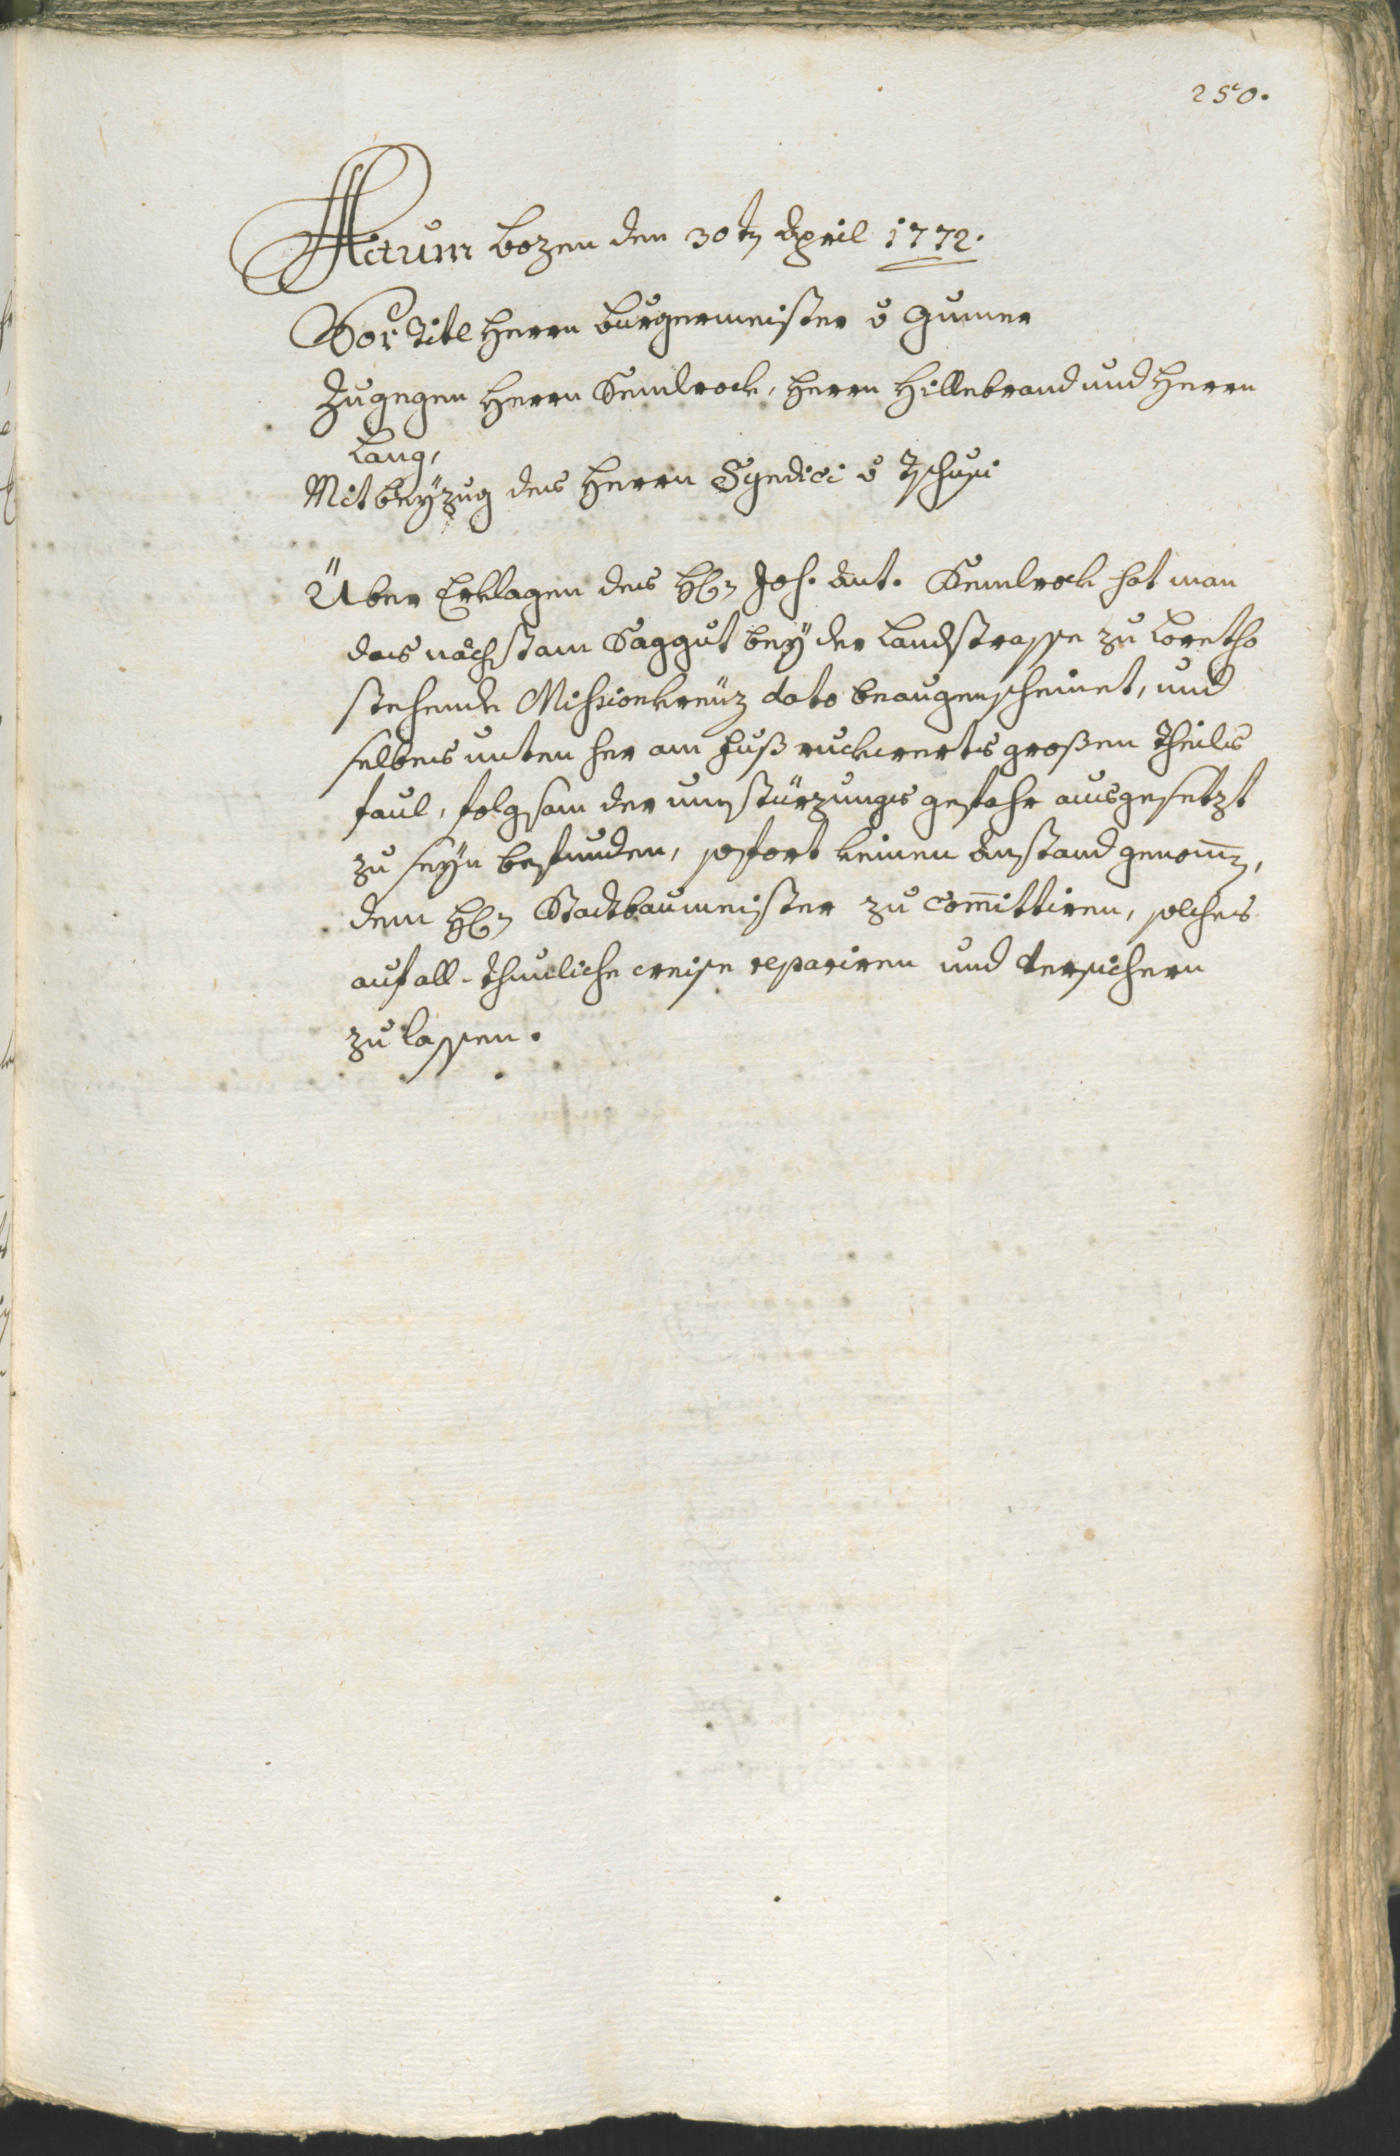 250.
Actum Bozen den 30tn April 1772.
Vor Titl Herrn Burgermeister v Gumer
Zugegen Herrn Kemlrock, Herrn Hillebrand und Herrn
Lang,
Mit beÿzug des Herrn Syndici v Tschusi
Über Erklagen des Hhn Joh. Ant. Kemlrock hat man
das nächst am Saggut beÿ der Landstrasse zu Loretho
stehende Missionkreuz dato beaugenscheinet, und
selbes unten her am fuß ruckwerts großen Theils
faul, folgsam der umstürzungs gefahr ausgesetzt
zu seÿn befunden, sofort keinen anstand genom̄n,
dem Hhn Stadtbaumeister zu com̄ittiren, solches
auf all-thunliche weise repariren und versichern
zu lassen.